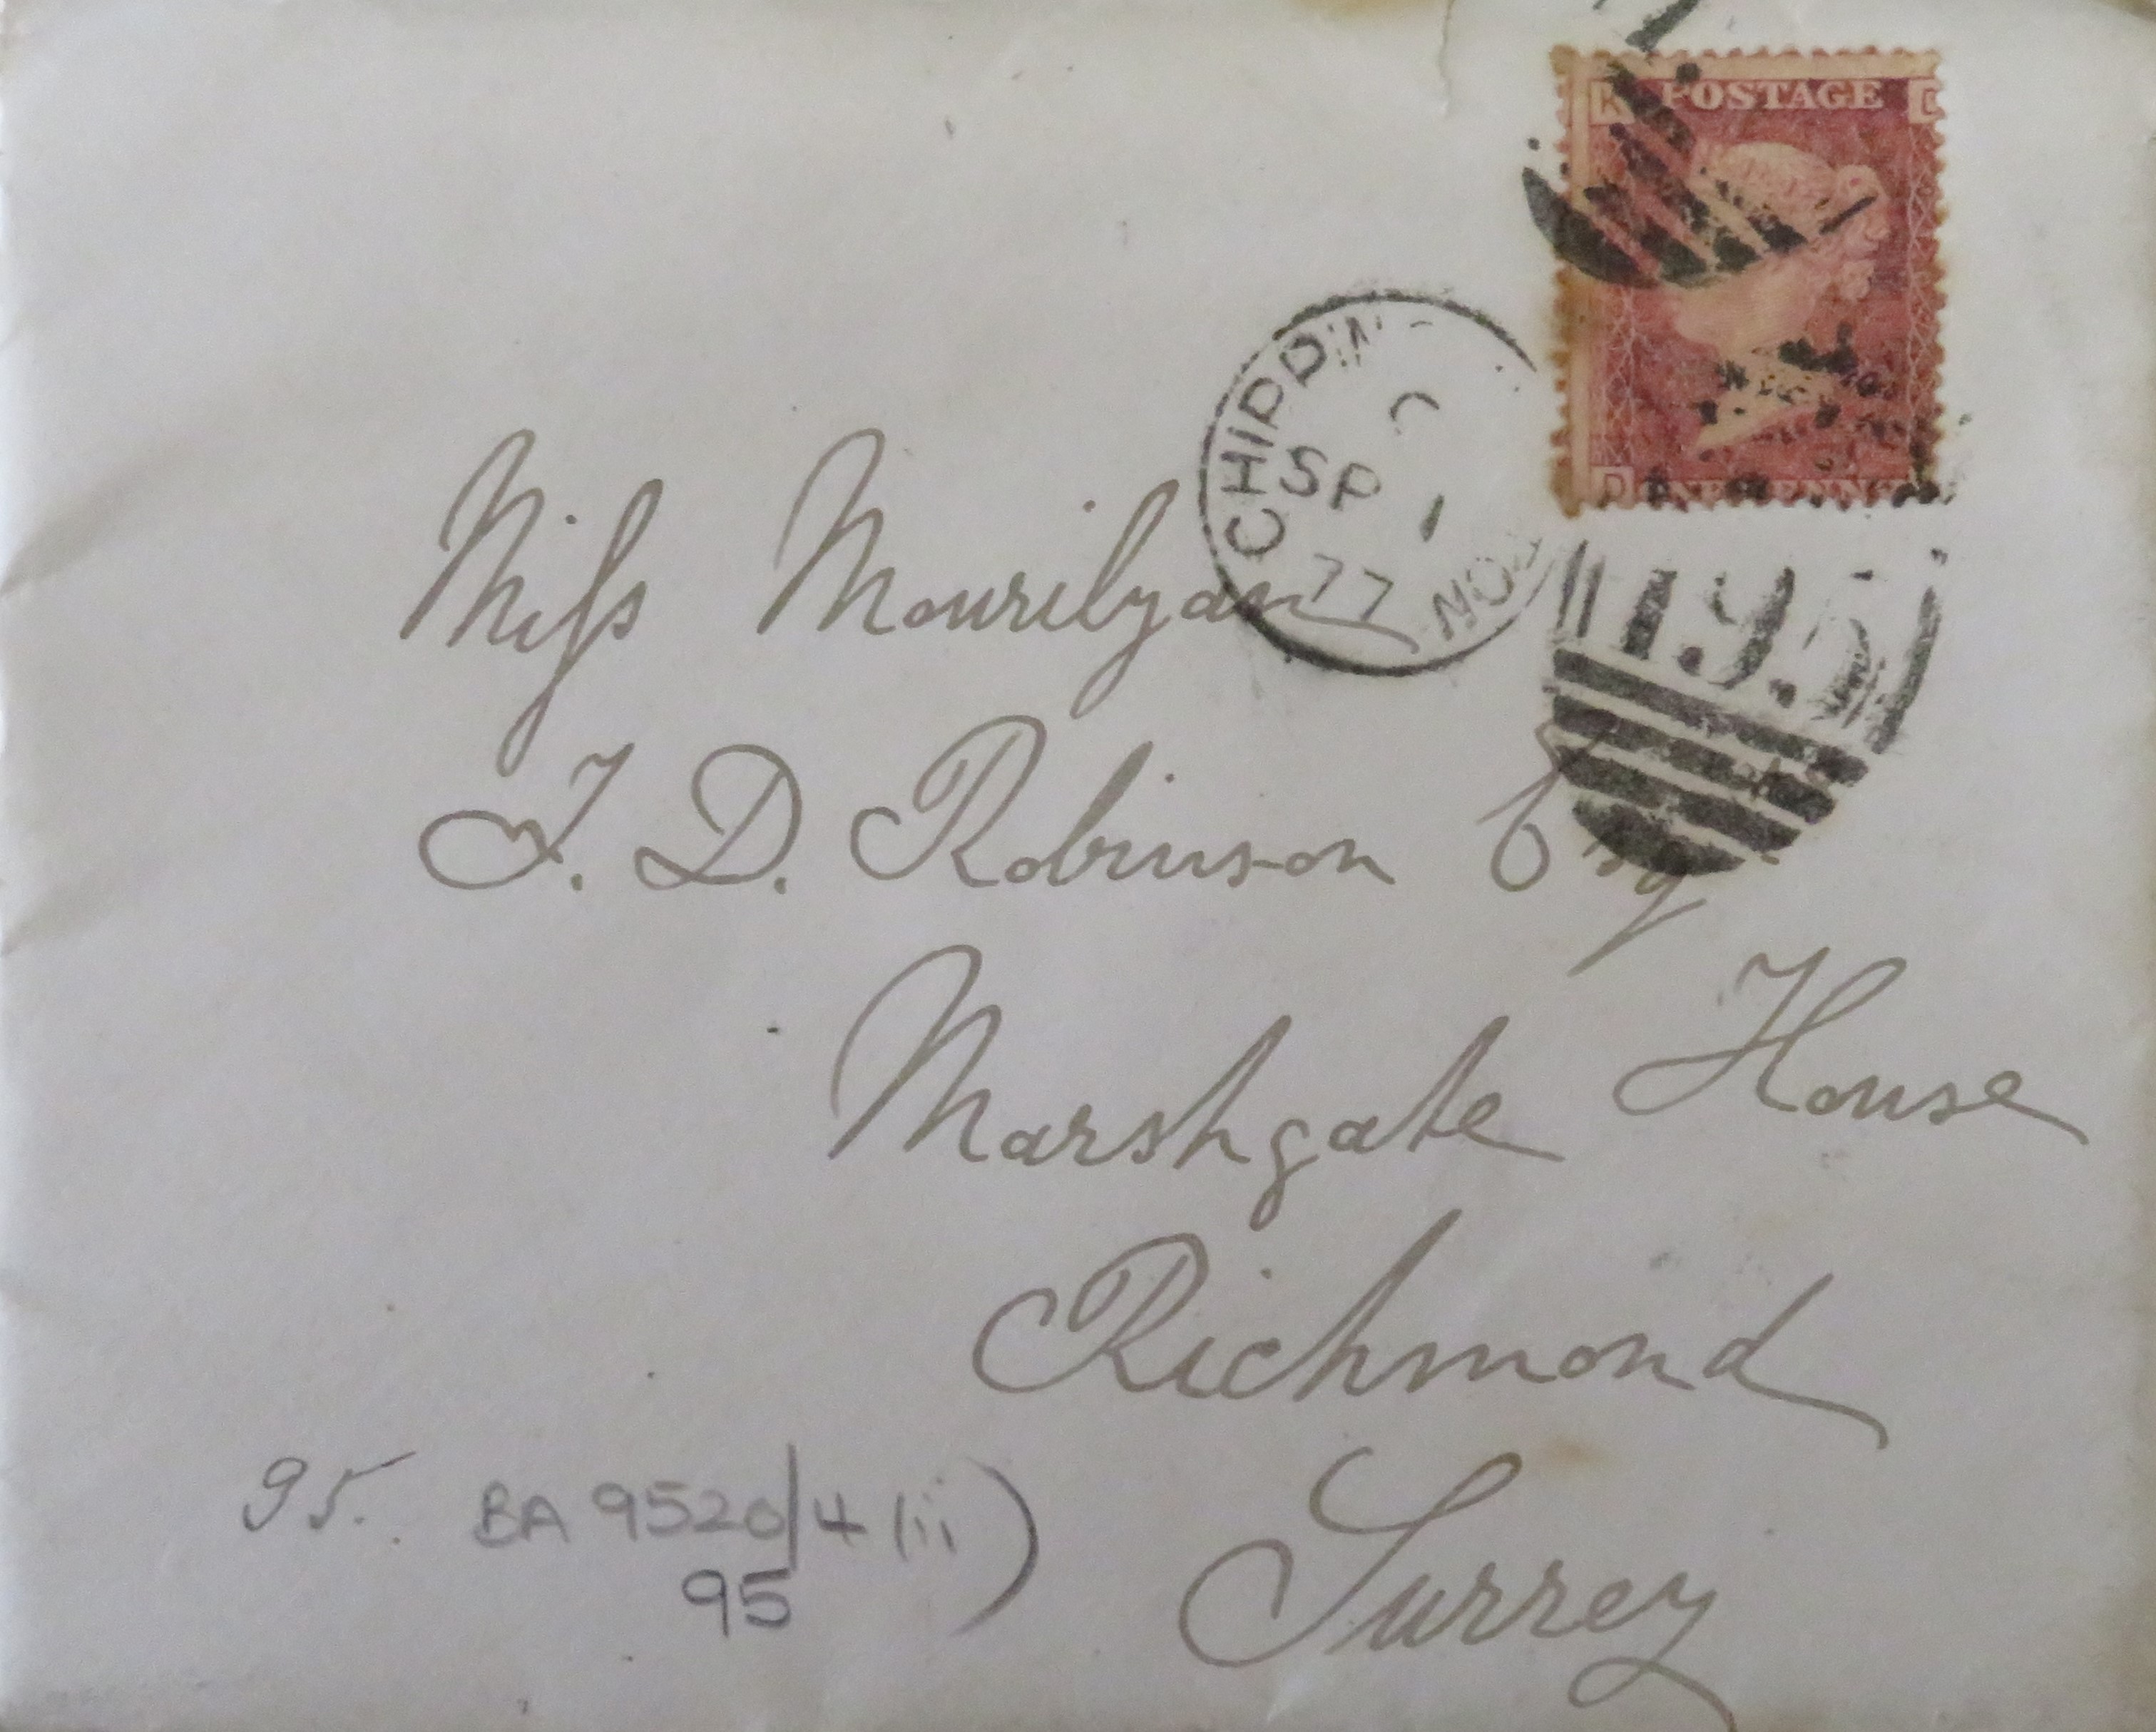 K POSTAGE D
D ONE PENNY
CHIPPIN
SP 1
77
TON
195
Miſs Mourilyan
T. D. Robinson Esq
Marshgate House
Richmond
Surrey
95. BA 9520/4 (ii)
95